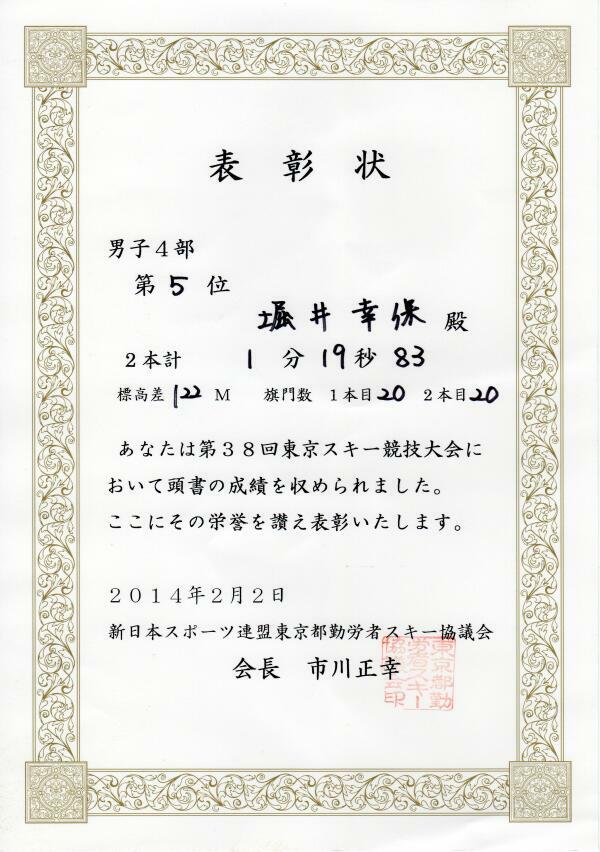 表彰状
男子４部
第５位
堀井幸保殿
２本計 １分１９秒８３
標高差１２２Ｍ 旗門数 １本目２０ ２本目２０
あなたは第３８回東京スキー競技大会に
おいて頭書の成績を収められました。
ここにその栄誉を讃え表彰いたします。
２０１４年２月２日
新日本スポーツ連盟東京都勤労者スキー協議会
会長 市川正幸
東京都勤
労者スキー